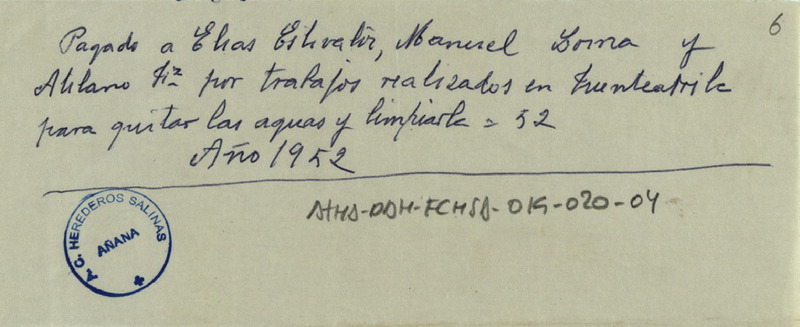 6
Pagado a Elias Estivaliz, Manuel Loma y
Atilano Fz por trabajos realizados en Fuenteatrile
para quitar las aguas y limpiarle = 52
Año 1952
ATHA-DAH-FCHSA-019-020-04
T. C. HEREDEROS SALINAS
AÑANA